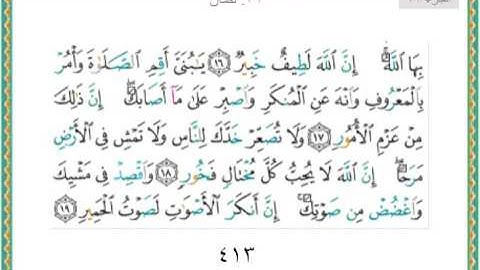 ٣١. لقمان
بِهَا اللَّهُ ۚ إِنَّ اللَّهَ لَطِيفٌ خَبِيرٌ ﴿١٦﴾ يَا بُنَيَّ أَقِمِ الصَّلَاةَ وَأْمُرْ
بِالْمَعْرُوفِ وَانْهَ عَنِ الْمُنكَرِ وَاصْبِرْ عَلَىٰ مَا أَصَابَكَ ۖ إِنَّ ذَٰلِكَ
مِنْ عَزْمِ الْأُمُورِ ﴿١٧﴾ وَلَا تُصَعِّرْ خَدَّكَ لِلنَّاسِ وَلَا تَمْشِ فِي الْأَرْضِ
مَرَحًا ۖ إِنَّ اللَّهَ لَا يُحِبُّ كُلَّ مُخْتَالٍ فَخُورٍ ﴿١٨﴾ وَاقْصِدْ فِي مَشْيِكَ
وَاغْضُضْ مِن صَوْتِكَ ۚ إِنَّ أَنكَرَ الْأَصْوَاتِ لَصَوْتُ الْحَمِيرِ ﴿١٩﴾
٤١٣